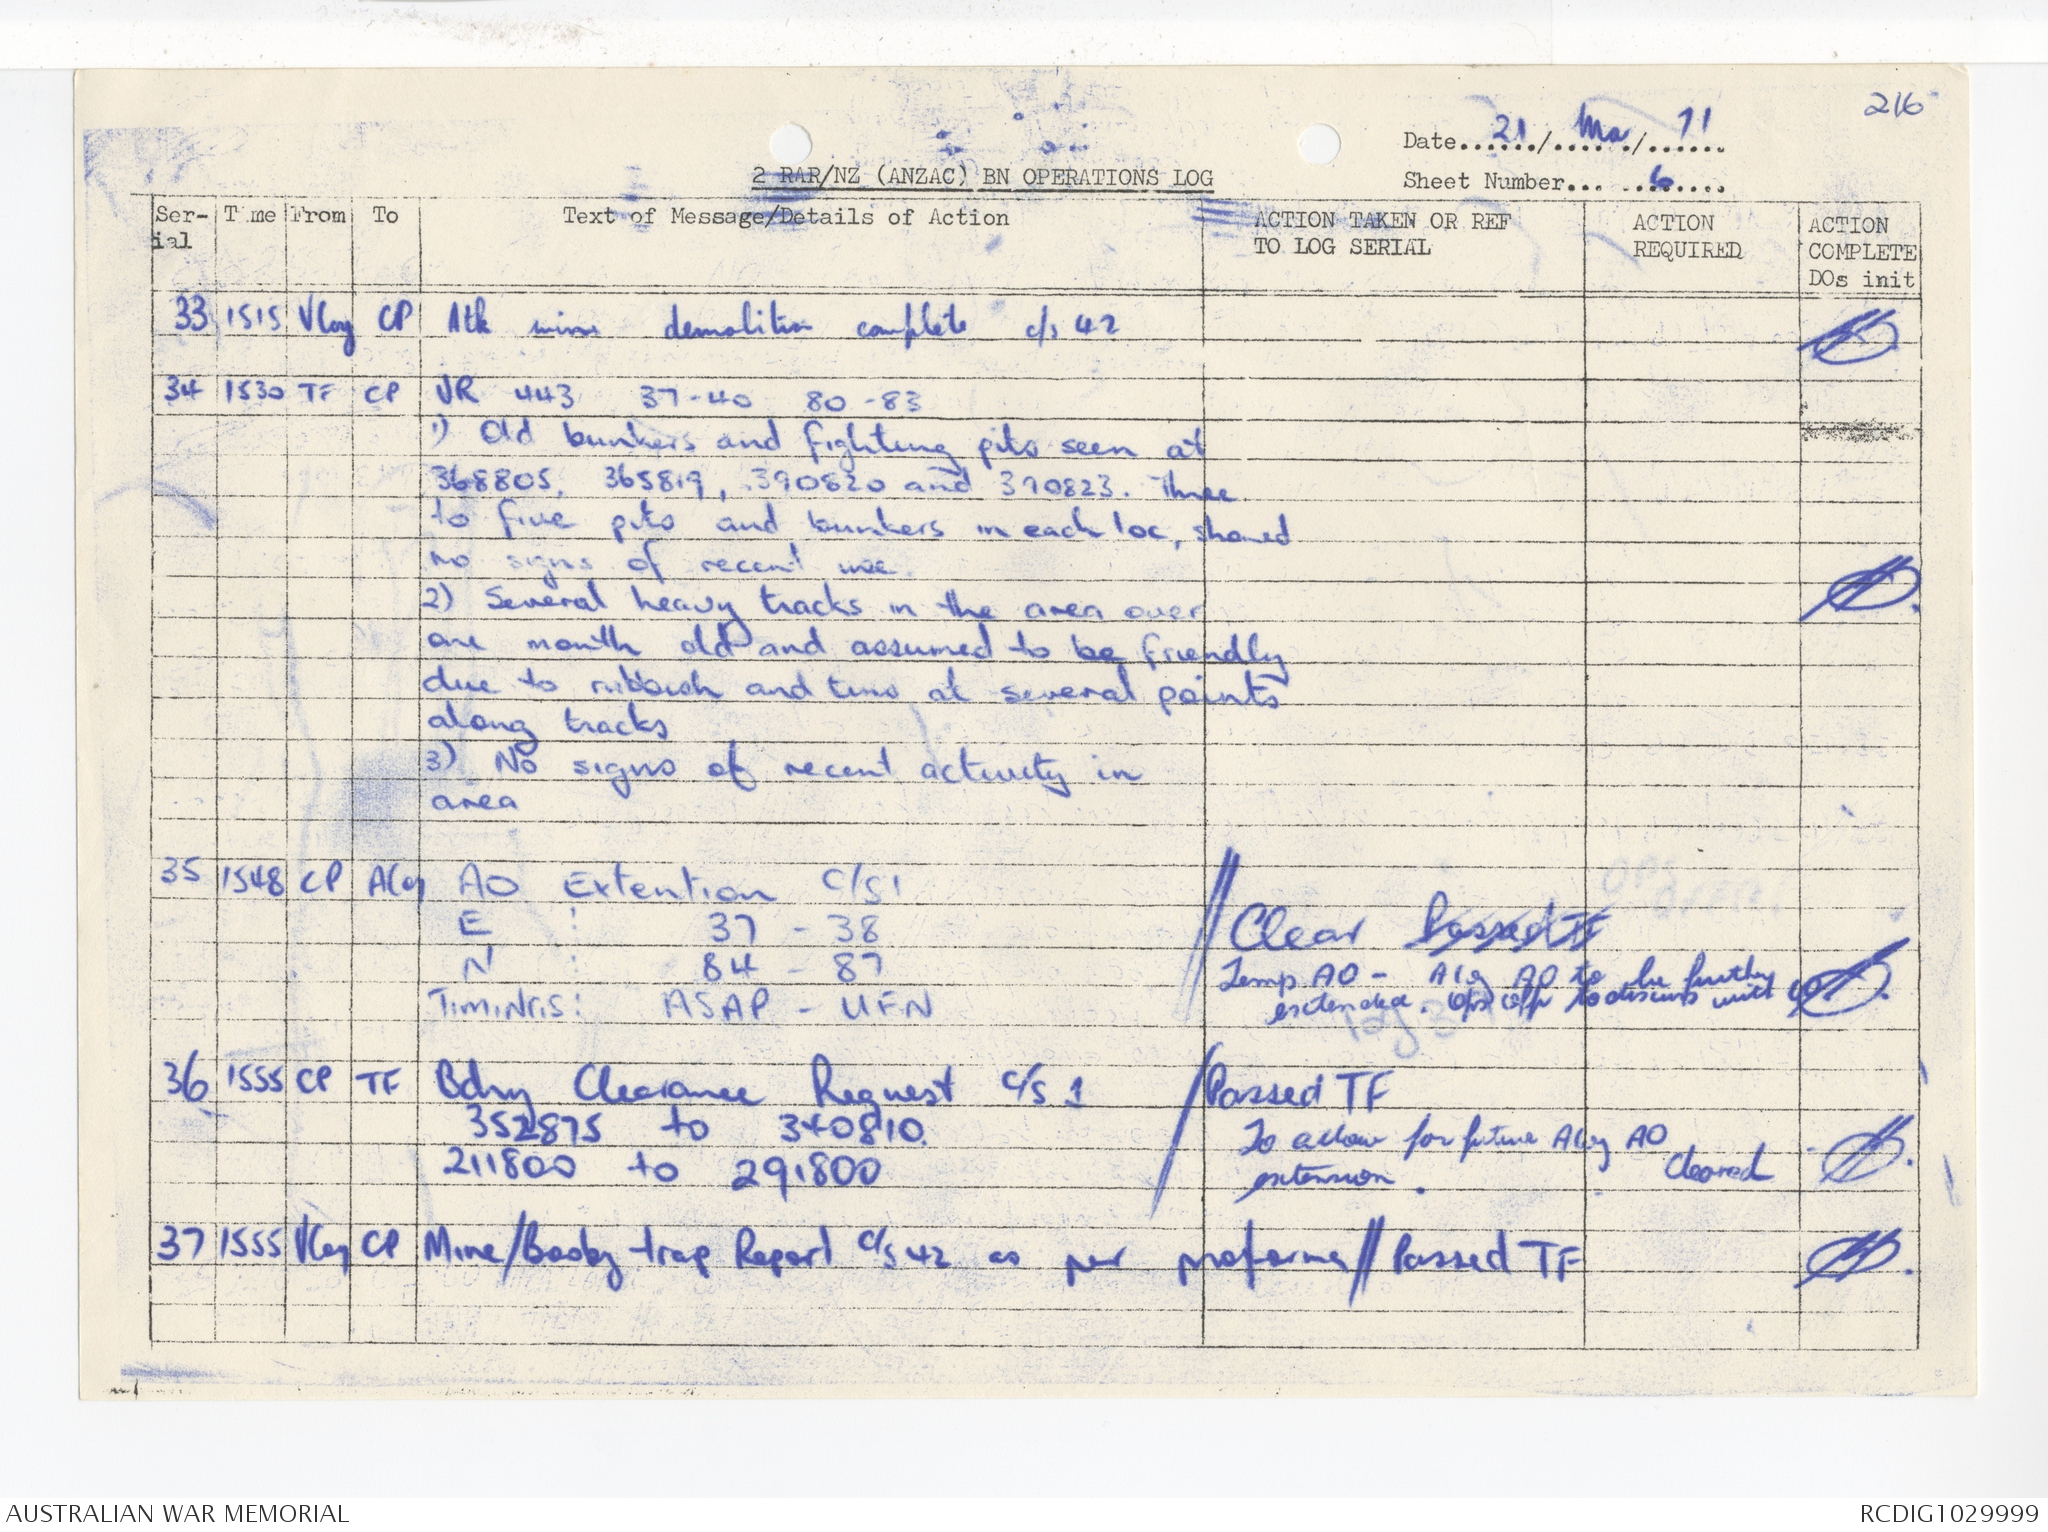 216
Date 21/Mar/71
2 RAR/NZ (ANZAC) BN OPERATIONS LOG
Sheet Number 6
Ser-ial Time From To Text of Message/Details of Action ACTION TAKEN OR REF TO LOG SERIAL ACTION REQUIRED ACTION COMPLETE DOs init
33 1515 VCoy CP Atk mine demolition complete c/s 42
34 1530 TF CP VR 443 37-40 80-83
1) Old bunkers and fighting pits seen at
368805, 365819, 390820 and 390823. Three
to five pits and bunkers in each loc, showed
no signs of recent use.
2) Several heavy tracks in the area over
one month old and assumed to be friendly
due to rubbish and tins at several points
along tracks
3) No signs of recent activity in
area
35 1548 CP ACoy AO Extention C/S1
E : 37 - 38
N : 84 - 87
TIMINGS: ASAP - UFN
// Clear Passed TF
Temp AO - ACoy AO to be further
extended. Ops Offr to discuss with
36 1555 CP TF Bdry Clearance Request C/S 1 / Passed TF
352875 to 340810.
211800 to 291800
To allow for future ACoy AO
extension. Cleared
37 1555 VCoy CP Mine/Booby trap Report C/S 42 as per proforma // Passed TF
AUSTRALIAN WAR MEMORIAL
RCDIG1029999